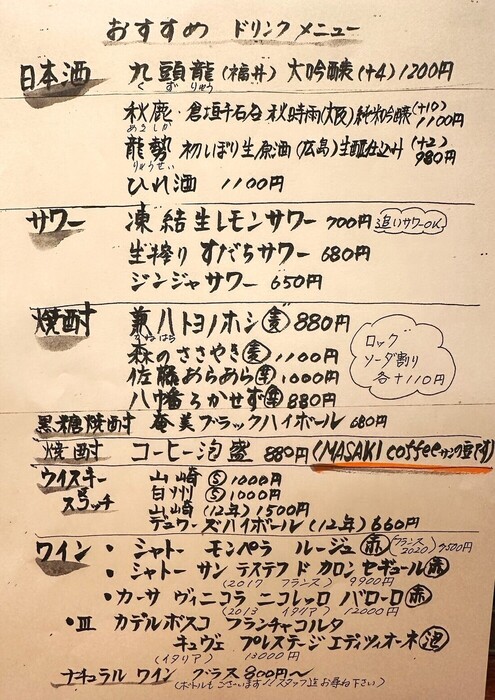 おすすめ ドリンクメニュー
日本酒 九頭龍(福井) 大吟醸 (+4) 1200円
くずりゅう
秋鹿・倉垣千石谷 秋時雨(大阪)純米吟醸(+10) 1100円
あきしか
龍勢 初しぼり生原酒(広島)生酛仕込み(+2) 980円
りゅうせい
ひれ酒 1100円
サワー 凍結生レモンサワー 700円 追いサワーOK
生搾り すだちサワー 680円
ジンジャサワー 650円
焼酎 兼八トヨノホシ 麦 880円
かねはち
森のささやき 麦 1100円
佐藤あらあら 芋 1000円
八幡ろかせず 芋 880円
ロック
ソーダ割り
各+110円
黒糖焼酎 奄美ブラックハイボール 680円
焼酎 コーヒー泡盛 880円 (MASAKI coffeeサンの豆です)
ウイスキー 山崎 S 1000円
スコッチ 白州 S 1000円
山崎 (12年) 1500円
デュワーズハイボール (12年) 660円
ワイン ・シャトー モンペラ ルージュ 赤 (フランス 2020) 7500円
・シャトー サン テステフ ド カロン セギュール 赤
(2017 フランス) 9900円
・カーサ ヴィニコラ ニコレッロ バローロ 赤
(2013 イタリア) 12000円
・Ⅲ カデルボスコ フランチャコルタ
キュヴェ プレステージ エディツィオーネ 泡
(イタリア) 13000円
ナチュラル ワイン グラス 800円〜
(ボトルもございます!! スタッフ迄お尋ね下さい)